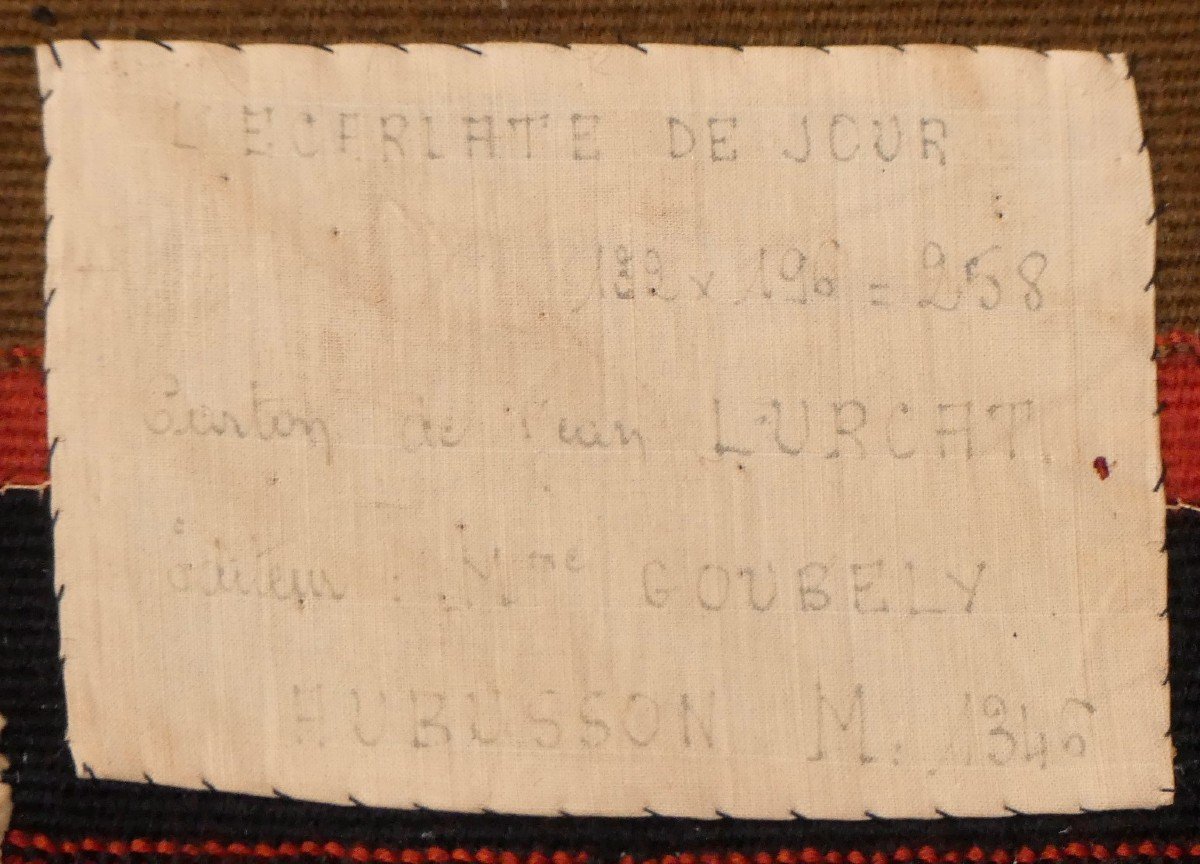 L'ECARLATE DE JOUR
132 x 196 = 258
Carton de Jean LURCAT.
éditeur : Mme GOUBELY
AUBUSSON M. 1946